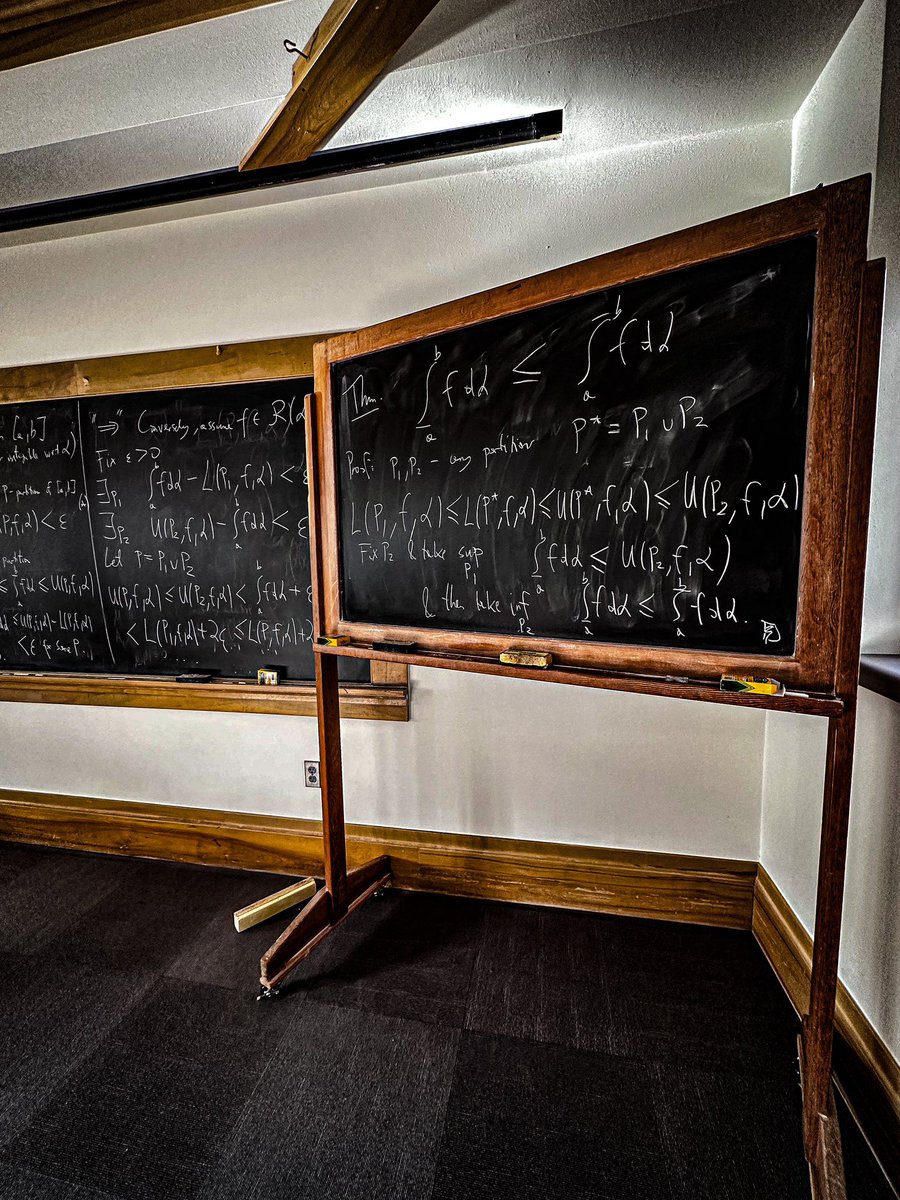 [a, b]
P - partition of [a, b]
P, f, α) < ε
partition
≤ ∫fdα ≤ U(P, f, α)
≤ U(P, f, α) - L(P
< ε for some P
"⇒" Conversely, assume f ∈ R(α
Fix ε > 0
∃P₁ ∫ₐᵇ fdα - L(P₁, f, α) < ε
∃P₂ U(P₂, f, α) - ∫ₐᵇ fdα < ε
Let P = P₁ ∪ P₂
U(P, f, α) ≤ U(P₂, f, α) < ∫ₐᵇ fdα + ε
< L(P₁, f, α) + 2ε ≤ L(P, f, α) + 2
Thm. \underline{∫}ₐᵇ f dα ≤ \overline{∫}ₐᵇ f dα
Proof: P₁, P₂ - any partition P* = P₁ ∪ P₂
L(P₁, f, α) ≤ L(P*, f, α) ≤ U(P*, f, α) ≤ U(P₂, f, α)
Fix P₂ & take sup P₁ \underline{∫}ₐᵇ f dα ≤ U(P₂, f, α)
& then take inf P₂ \underline{∫}ₐᵇ f dα ≤ \overline{∫}ₐᵇ f dα.